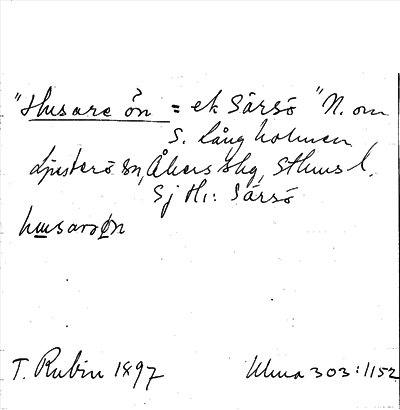 "Husare ön = ek Särsö" N. om
S. Långholmen
Ljusterö sn, Åkers skg, Sthms l.
Sj Hr: Särsö
husarøn
T. Rubin 1897 Ulma 303:1152